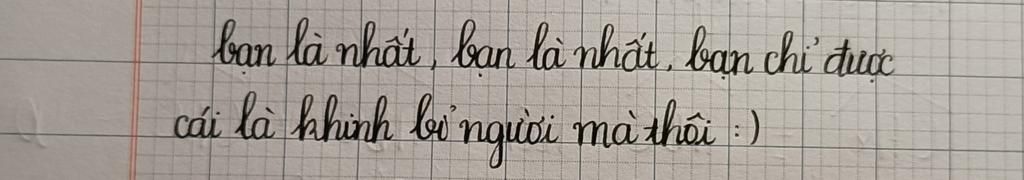 bạn là nhất, bạn là nhất, bạn chỉ được
cái là khinh bỉ người mà thôi :)